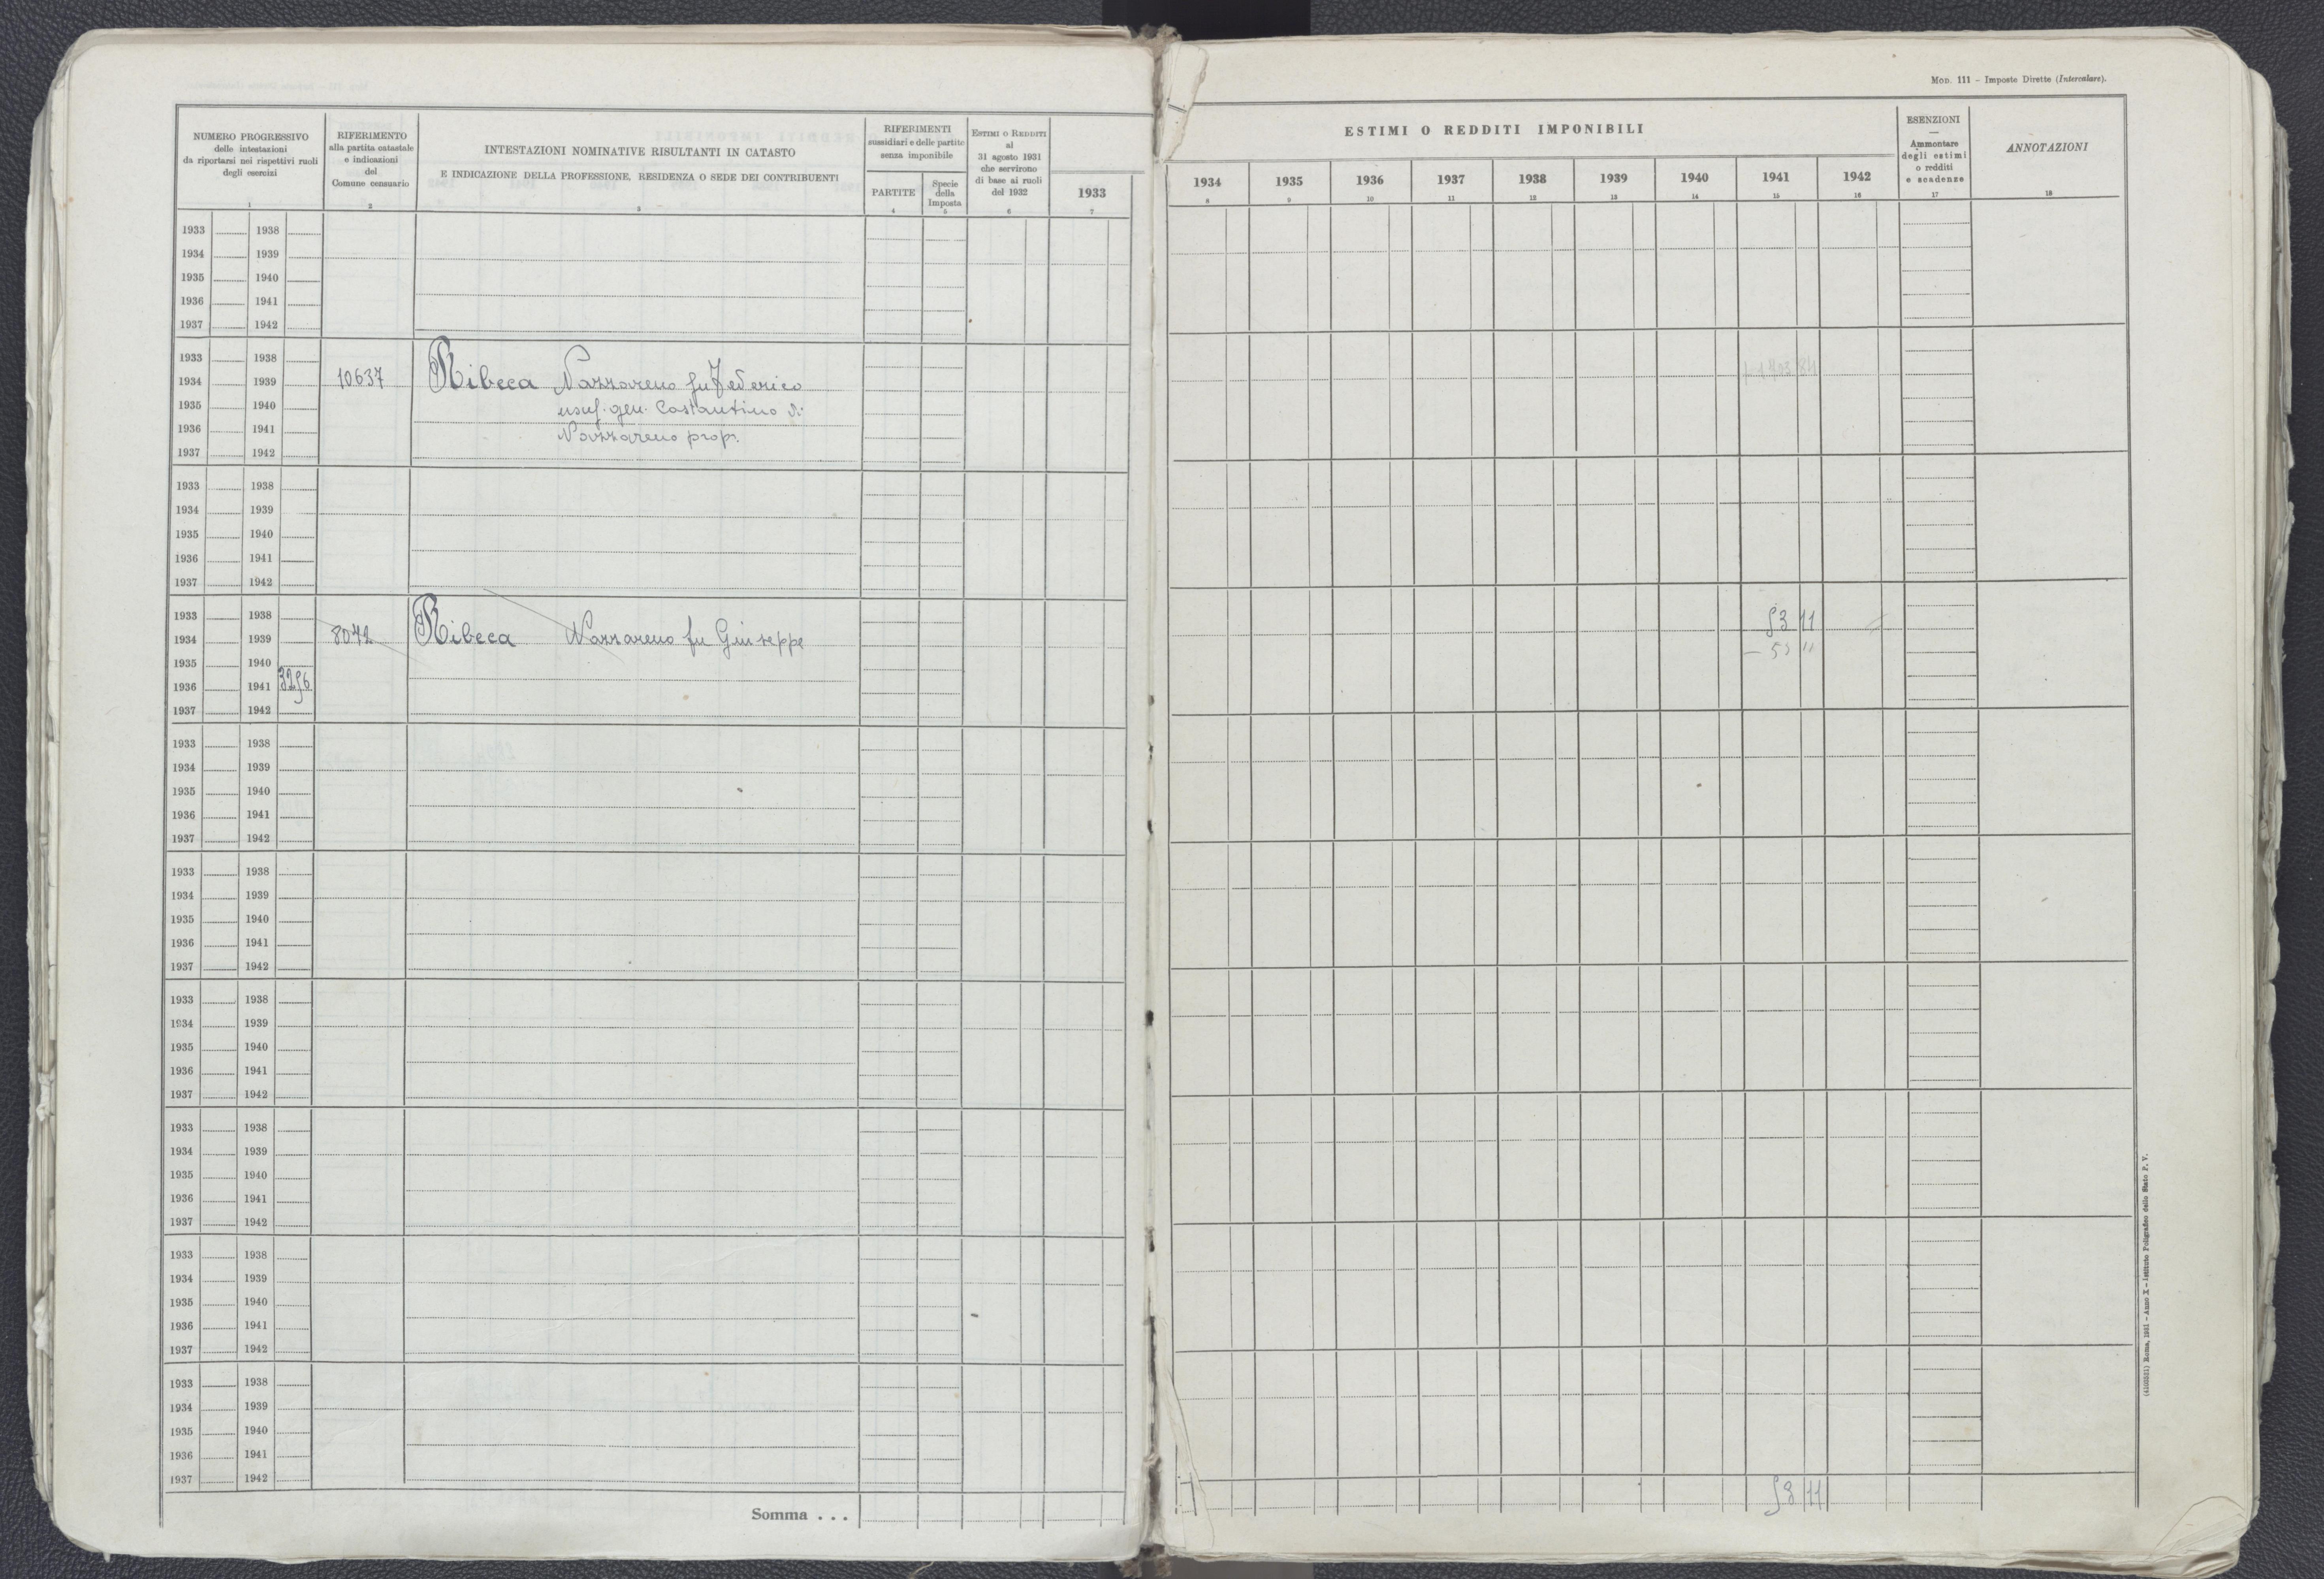 Mod. 111 – Imposte Dirette (Intercalare).
NUMERO PROGRESSIVO
delle intestazioni
da riportarsi nei rispettivi ruoli
degli esercizi
1
RIFERIMENTO
alla partita catastale
e indicazioni
del
Comune censuario
2
INTESTAZIONI NOMINATIVE RISULTANTI IN CATASTO
E INDICAZIONE DELLA PROFESSIONE, RESIDENZA O SEDE DEI CONTRIBUENTI
3
RIFERIMENTI
sussidiari e delle partite
senza imponibile
PARTITE
4
Specie
della
Imposta
5
Estimi o Redditi
al
31 agosto 1931
che servirono
di base ai ruoli
del 1932
6
1933
7
ESTIMI O REDDITI IMPONIBILI
1934 1935 1936 1937 1938 1939 1940 1941 1942
8 9 10 11 12 13 14 15 16
ESENZIONI
—
Ammontare
degli estimi
o redditi
e scadenze
17
ANNOTAZIONI
18
1933 1938
1934 1939
1935 1940
1936 1941
1937 1942
1933 1938
1934 1939 10637 Ribeca Nazzareno fu Federico
1935 1940 usuf. gen. Costantino di
1936 1941 Nazzareno prop.
1937 1942
1933 1938
1934 1939
1935 1940
1936 1941
1937 1942
1933 1938
1934 1939 8072 Ribeca Nazzareno fu Giuseppe 53 11
1935 1940 – 53 11
1936 1941 3256
1937 1942
1933 1938
1934 1939
1935 1940
1936 1941
1937 1942
1933 1938
1934 1939
1935 1940
1936 1941
1937 1942
1933 1938
1934 1939
1935 1940
1936 1941
1937 1942
1933 1938
1934 1939
1935 1940
1936 1941
1937 1942
1933 1938
1934 1939
1935 1940
1936 1941
1937 1942
1933 1938
1934 1939
1935 1940
1936 1941
1937 1942
Somma . . . 53 11
Roma, 1931 – Anno X – Istituto Poligrafico dello Stato P. V.